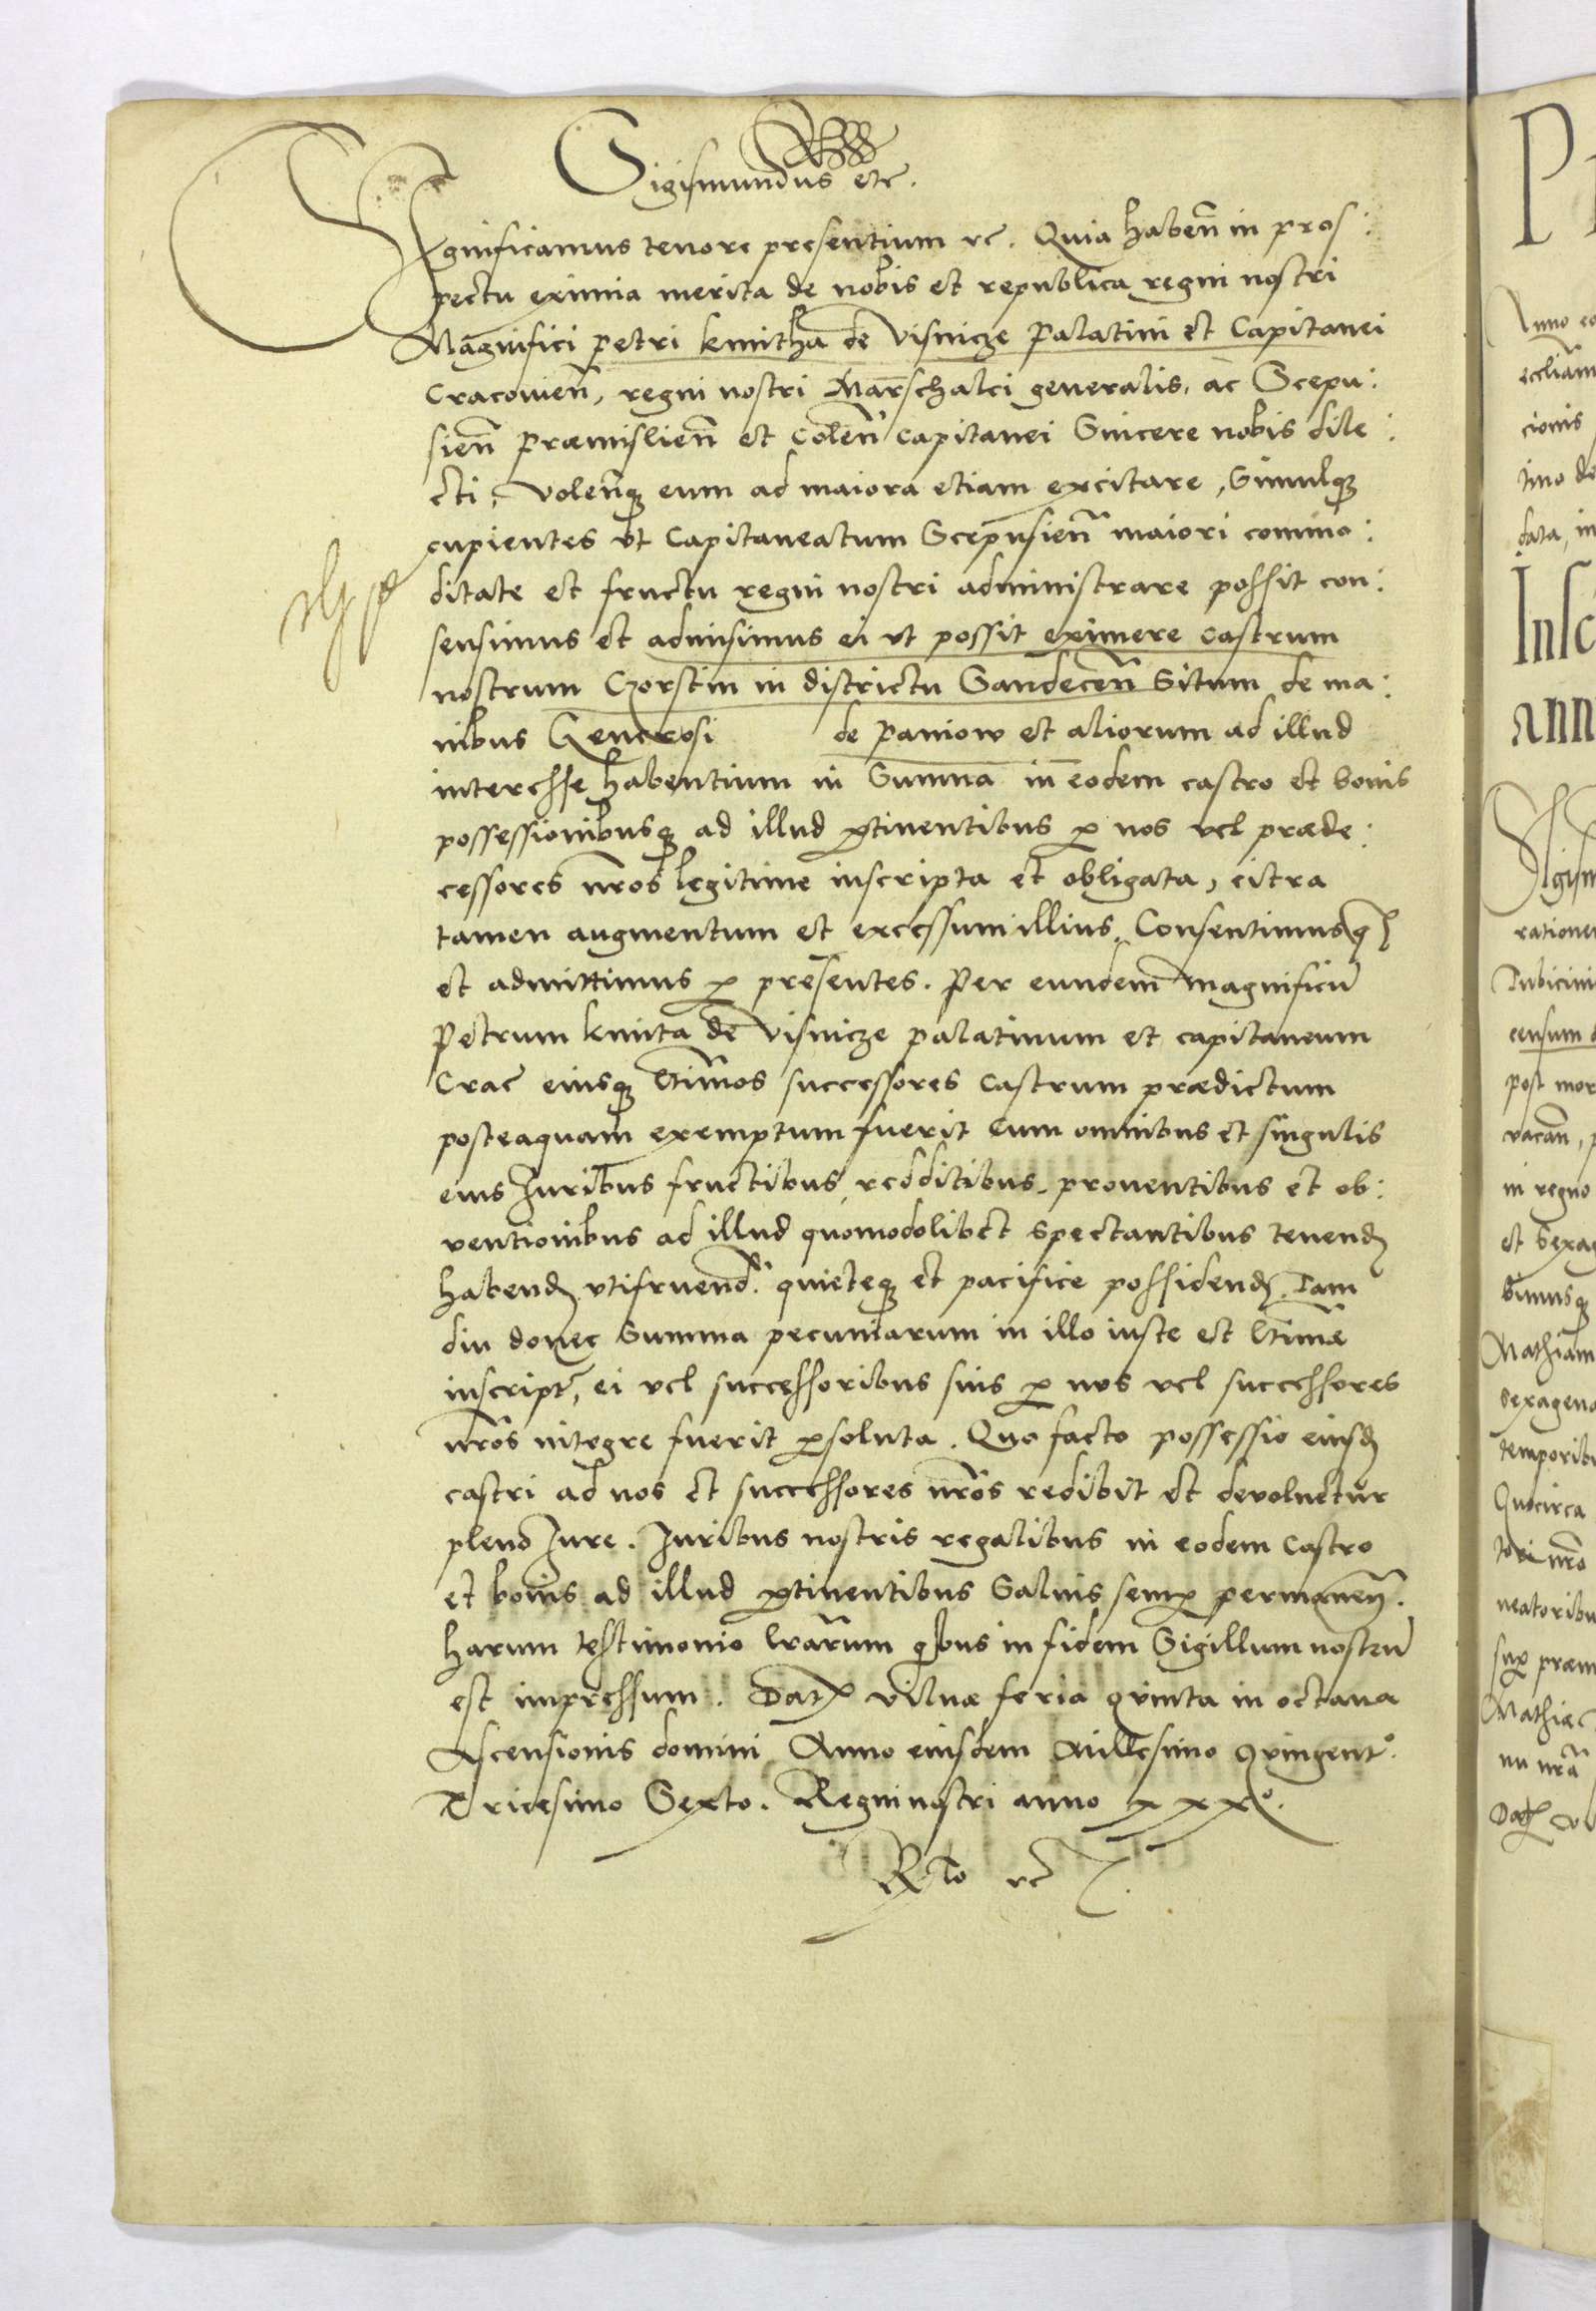 Sigismundus etc.
Significamus tenore presentium etc. Quia haben̄ in pros:
pectu eximia merita de nobis et republica regni nostri
Magnifici Petri kmitha de Visnicze Palatini et Capitanei
Cracovien̄, regni nostri Marschalci generalis, ac Scepu:
sien̄ Præmislien̄ et Colen̄ capitanei Sincere nobis dile:
cti, volen̄q eum ad maiora etiam excitare, Simulq
cupientes vt Capitaneatum Scepusien̄ maiori commo:
ditate et fructu regni nostri administrare possit con:
sensimus et admisimus ei vt possit eximere castrum
nostrum Czorstin in districtu Sandecen̄ Situm de ma:
nibus Generosi de Paniow et aliorum ad illud
interesse habentium in Summa in eodem castro et bonis
possessionibusq ad illud ꝑtinentibus ꝑ nos vel præde:
cessores nr̄os legitime inscripta et obligata, citra
tamen augmentum et excessum illius. Consentimusq
et admittimus ꝑ presentes. Per eundem Magnificū
Petrum kmita de Visnicze palatinum et capitaneum
Crac̄ eiusq l̄timos successores Castrum prædictum
posteaquam exemptum fuerit Cum omnibus et singulis
eius Iuribus fructibus, redditibus, proventibus et ob:
ventionibus ad illud quomodolibet spectantibus tenend
habend vtifruend. quieteq et pacifice possidend. Tam
diu donec Summa pecuniarum in illo iuste et l̄timæ
inscript, ei vel successoribus suis ꝑ nos vel successores
nr̄os integre fuerit ꝑsoluta. Quo facto possessio eiusd
castri ad nos et successores nr̄os redibit et devoluetur
pleno Iure. Iuribus nostris regalibus in eodem Castro
et bonis ad illud ꝑtinentibus Salvis semꝑ permanen̄.
Harum testimonio l̄rarum quibus in fidem Sigillum nostrū
est impressum. Dat Vilnæ feria quinta in octava
Ascensionis domini Anno eiusdem Millesimo quingent°.
Tricesimo Sexto. Regni nostri anno xxx°.
R̄to etc
Anno
eccliam
cionis
timo de
data, in
Insc
ann
Sigism
rationem
Tubicini
censum
post mor
vacan̄,
in regno
et sexag
bimusq
Mathiam
sexagena
temporibu
Quocirca
nr̄o
neatoribu
suꝑ præm
Mathiæ
nr̄a
Dat